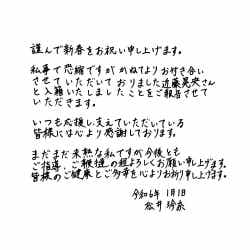 謹んで新春をお祝い申し上げます。
私事で恐縮ですが かねてよりお付き合い
させていただいて おりました近藤晃央さん
と入籍いたしました ことをご報告させて
いただきます。
いつも応援し支えていただいている
皆様には心より感謝しております。
まだまだ未熟な私ですが今後とも
ご指導、ご鞭撻の程よろしくお願い申し上げます。
皆様のご健康とご多幸を心よりお祈り申し上げます。
令和6年 1月1日
松井 玲奈